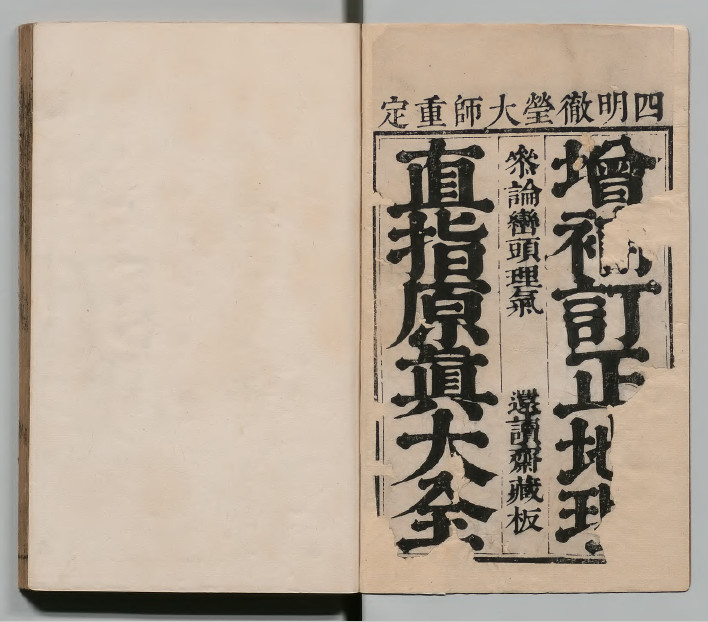 四明徹瑩大師重定
增補訂正地理
叅論巒頭理氣 還讀齋藏板
直指原眞大全